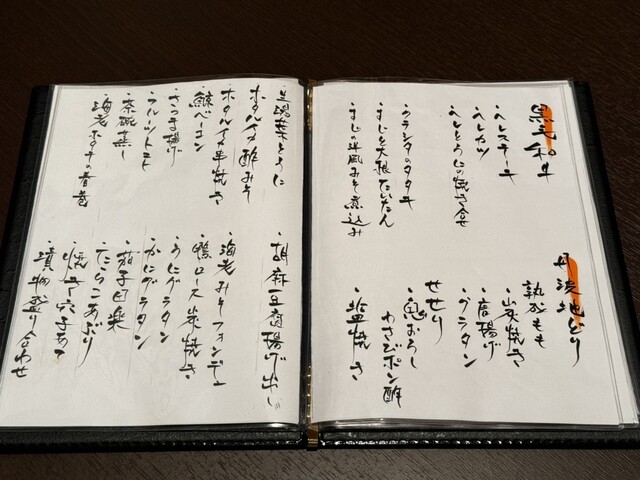 黒毛和牛
・ヘレステーキ
・ヘレカツ
・ヘレとうにの焼き合せ
・クラシタのタタキ
・すじと大根たいたん
・すじの洋風みそ煮込み
丹波地どり
熟成もも
・炭焼き
・唐揚げ
・グラタン
せせり
・鬼おろし
わさびポン酢
・塩焼き
生湯葉とうに
・ホタルイカ酢みそ
・ホタルイカ串焼き
・鯨ベーコン
・さつま揚げ
・フルーツトマト
・茶碗蒸し
・海老ホタテの春巻
・胡麻豆腐揚げ出し
・海老みそフォンデュ
・鴨ロース炭焼き
・うにグラタン
・かにグラタン
・茄子田楽
・たらこあぶり
・焼き穴子あて
・漬物盛り合わせ